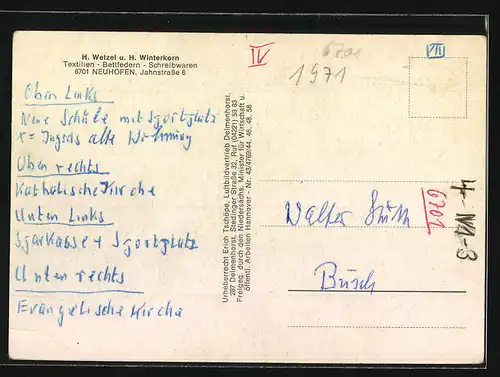 H. Wetzel u. H. Winterkorn
Textilien - Bettfedern - Schreibwaren
6701 NEUHOFEN, Jahnstraße 6
Oben Links
Neue Schule mit Sportplatz
x = alte Wohnung
Oben rechts
Katholische Kirche
Unten Links
Sparkasse + Sportplatz
Unten rechts
Evangelische Kirche
Urheberrecht Erich Tschöpe, Luftbildvertrieb Delmenhorst.
287 Delmenhorst, Stedinger Straße 32, Ruf (04221) 53 83
Freigeg. durch den Niedersächs. Minister für Wirtschaft u.
öffentl. Arbeiten Hannover - Nr. 43/4769/44, 46, 48, 58
IV
1971
III
Walter
Busch
6701